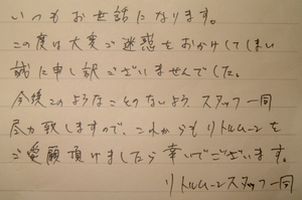 いつもお世話になります。
この度は大変ご迷惑をおかけしてしまい
誠に申し訳ございませんでした。
今後このようなことのないよう スタッフ一同
尽力致しますので、これからもリトルムーンを
ご愛顧頂けましたら幸いでございます。
リトルムーンスタッフ一同